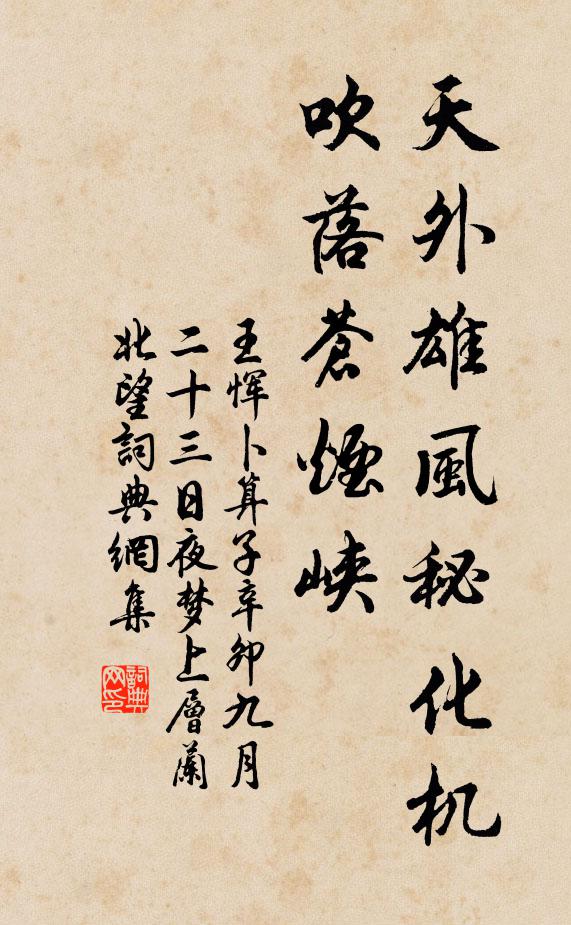 天外雄風秘化机
吹落蒼煙峽
王恽卜算子辛卯九月
二十三日夜梦上層蘭
北望詞典網集
詞典网印